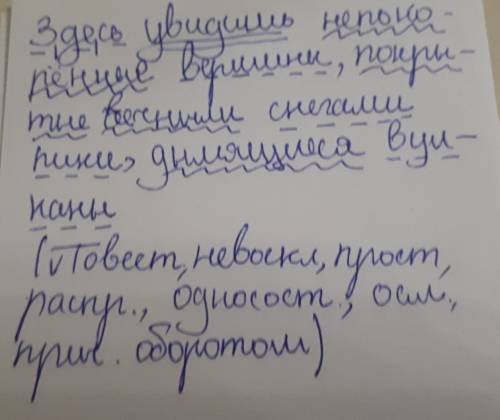 Здесь увидишь непоко-
рённые вершины, покры-
тые вечными снегами
пики, дымящиеся вул-
каны
(Повест, невоскл, прост,
распр., односост., осл.,
прич. оборотом)